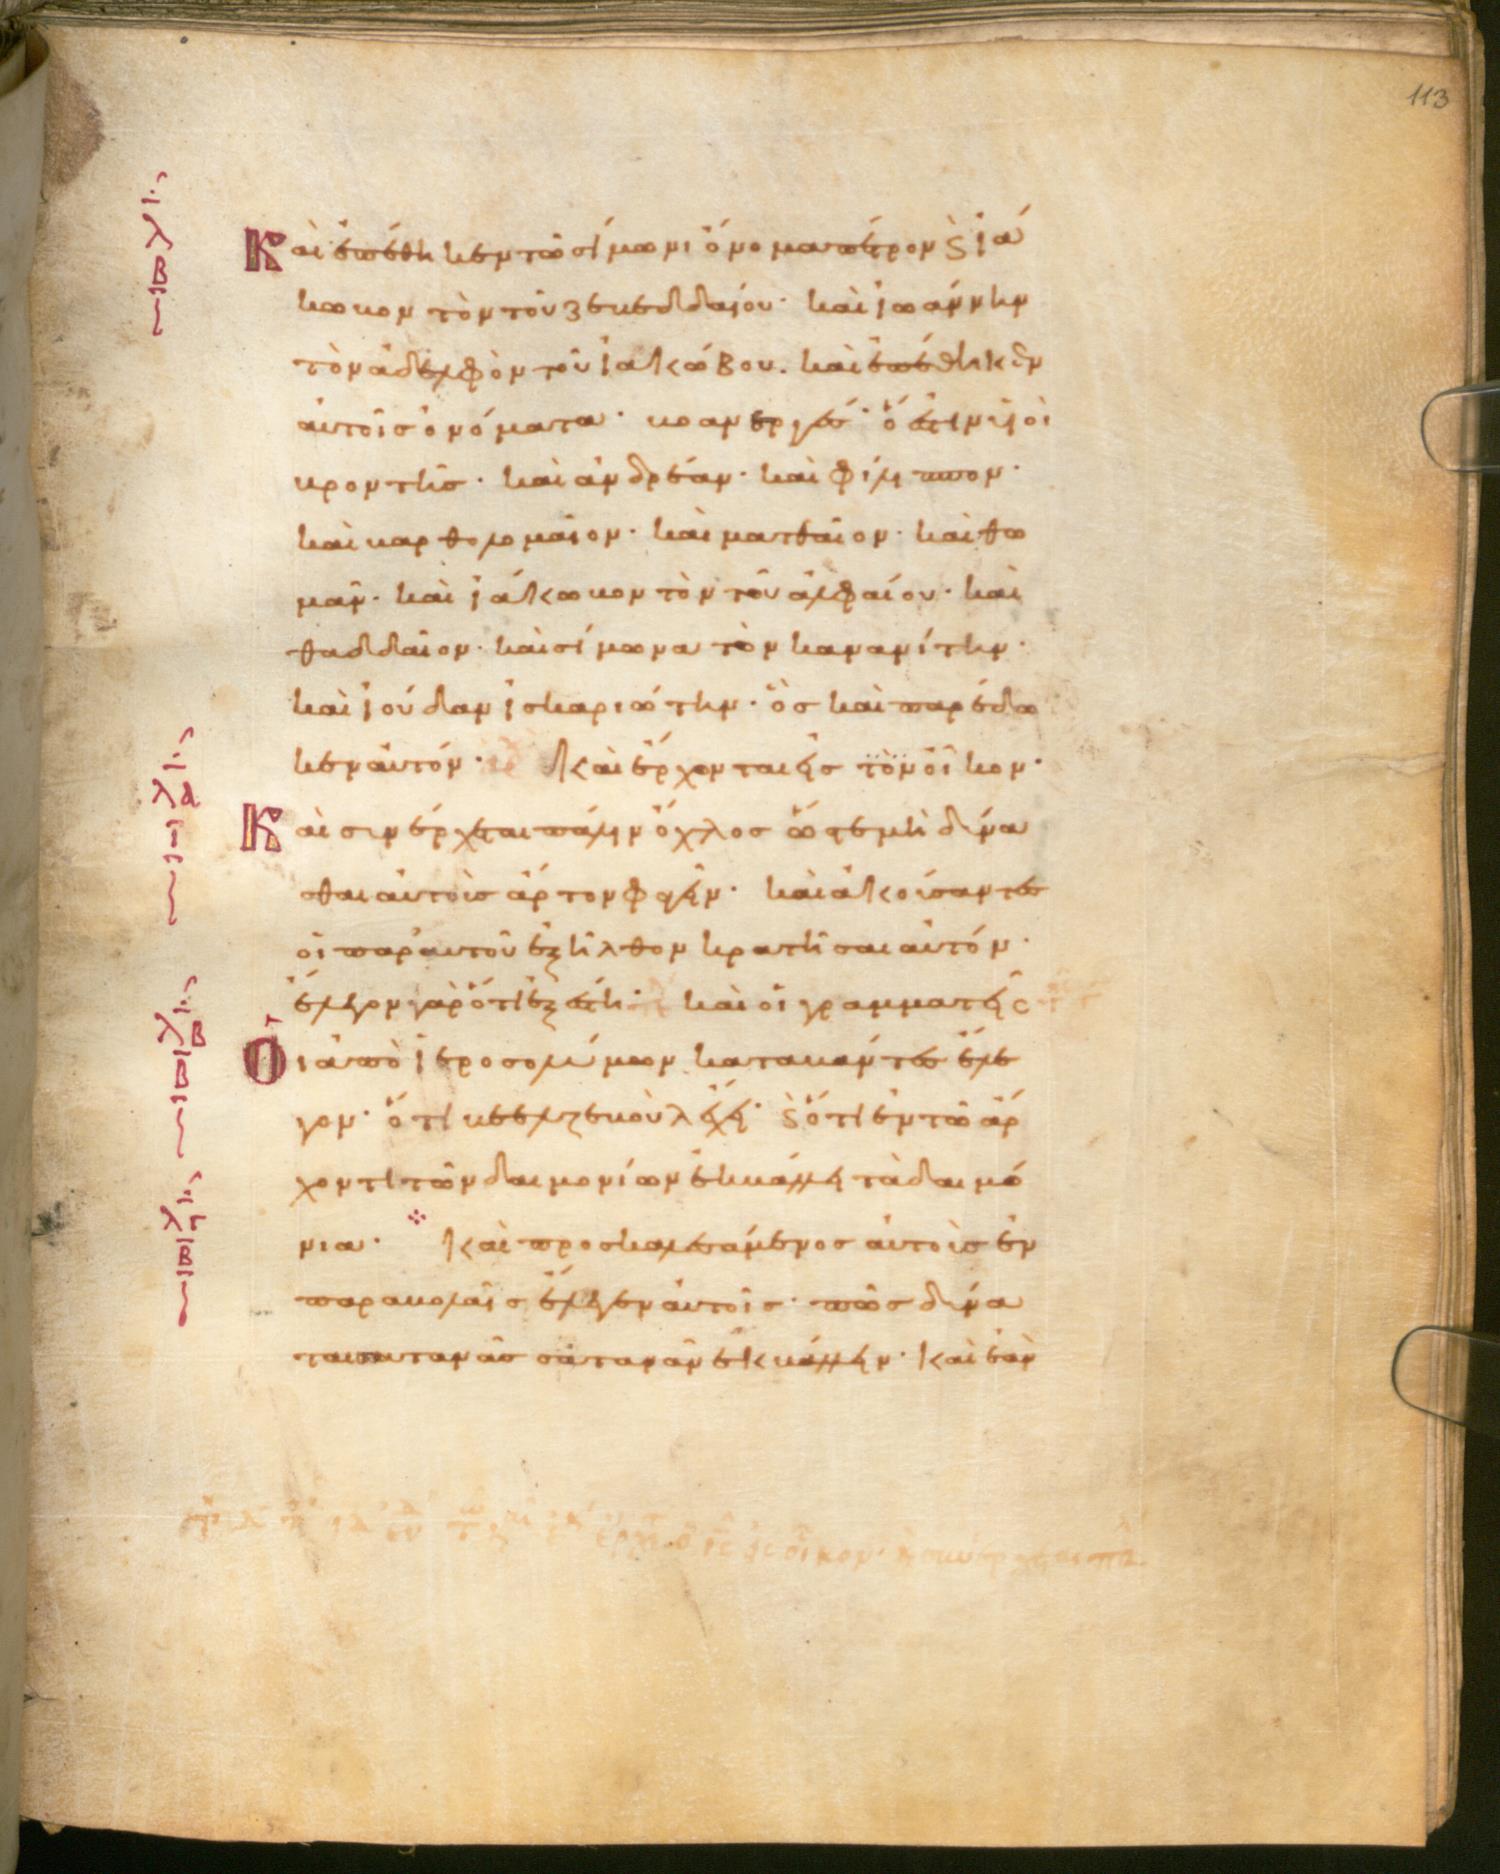 113
Καὶ ἐπέθηκεν τῶ σίμωνι ὄνομα πέτρον ϛ ἰά
κωβον τὸν τοῦ ζεβεδδαίου· καὶ ἰωάννην
τὸν ἀδελφὸν τοῦ ἰακώβου. καὶ ἐπέθηκεν
αὐτοῖσ ὀνόματα· βοανεργές· ὅ ἐστιν υἱοὶ
βροντῆσ· καὶ ἀνδρέαν· καὶ φίλιππον·
καὶ βαρθολομαῖον· καὶ ματθαῖον· καὶ θω
μᾶν· καὶ ἰάκωβον τὸν τοῦ ἀλφαίου· καὶ
θαδδαῖον· καὶ σίμωνα τὸν κανανίτην·
καὶ ἰούδαν ἰσκαριώτην· ὃσ καὶ παρέδω
κεν αὐτόν· Καὶ ἔρχονται εἰσ τὸν οἶκον·
Καὶ συνέρχεται πάλιν ὄχλοσ ὥστε μὴ δύνα
σθαι αὐτοὺσ ἄρτον φαγεῖν· καὶ ἀκούσαντες
οἱ παρ' αὐτοῦ ἐξῆλθον κρατῆσαι αὐτόν·
ἔλεγον γὰρ ὅτι ἐξέστη· καὶ οἱ γραμματεῖς
Οἱ ἀπὸ ἱεροσολύμων καταβάντες ἔλε
γον· ὅτι βεελζεβοὺλ ἔχει· ϛ ὅτι ἐν τῶ ἄρ
χοντι τῶν δαιμονίων ἐκβάλλει τὰ δαιμό
νια· Καὶ προσκαλεσάμενοσ αὐτοὺσ ἐν
παραβολαῖσ ἔλεγεν αὐτοῖσ· πῶσ δύνα
ται σατανᾶσ σατανᾶν ἐκβάλλειν· καὶ ἐὰν